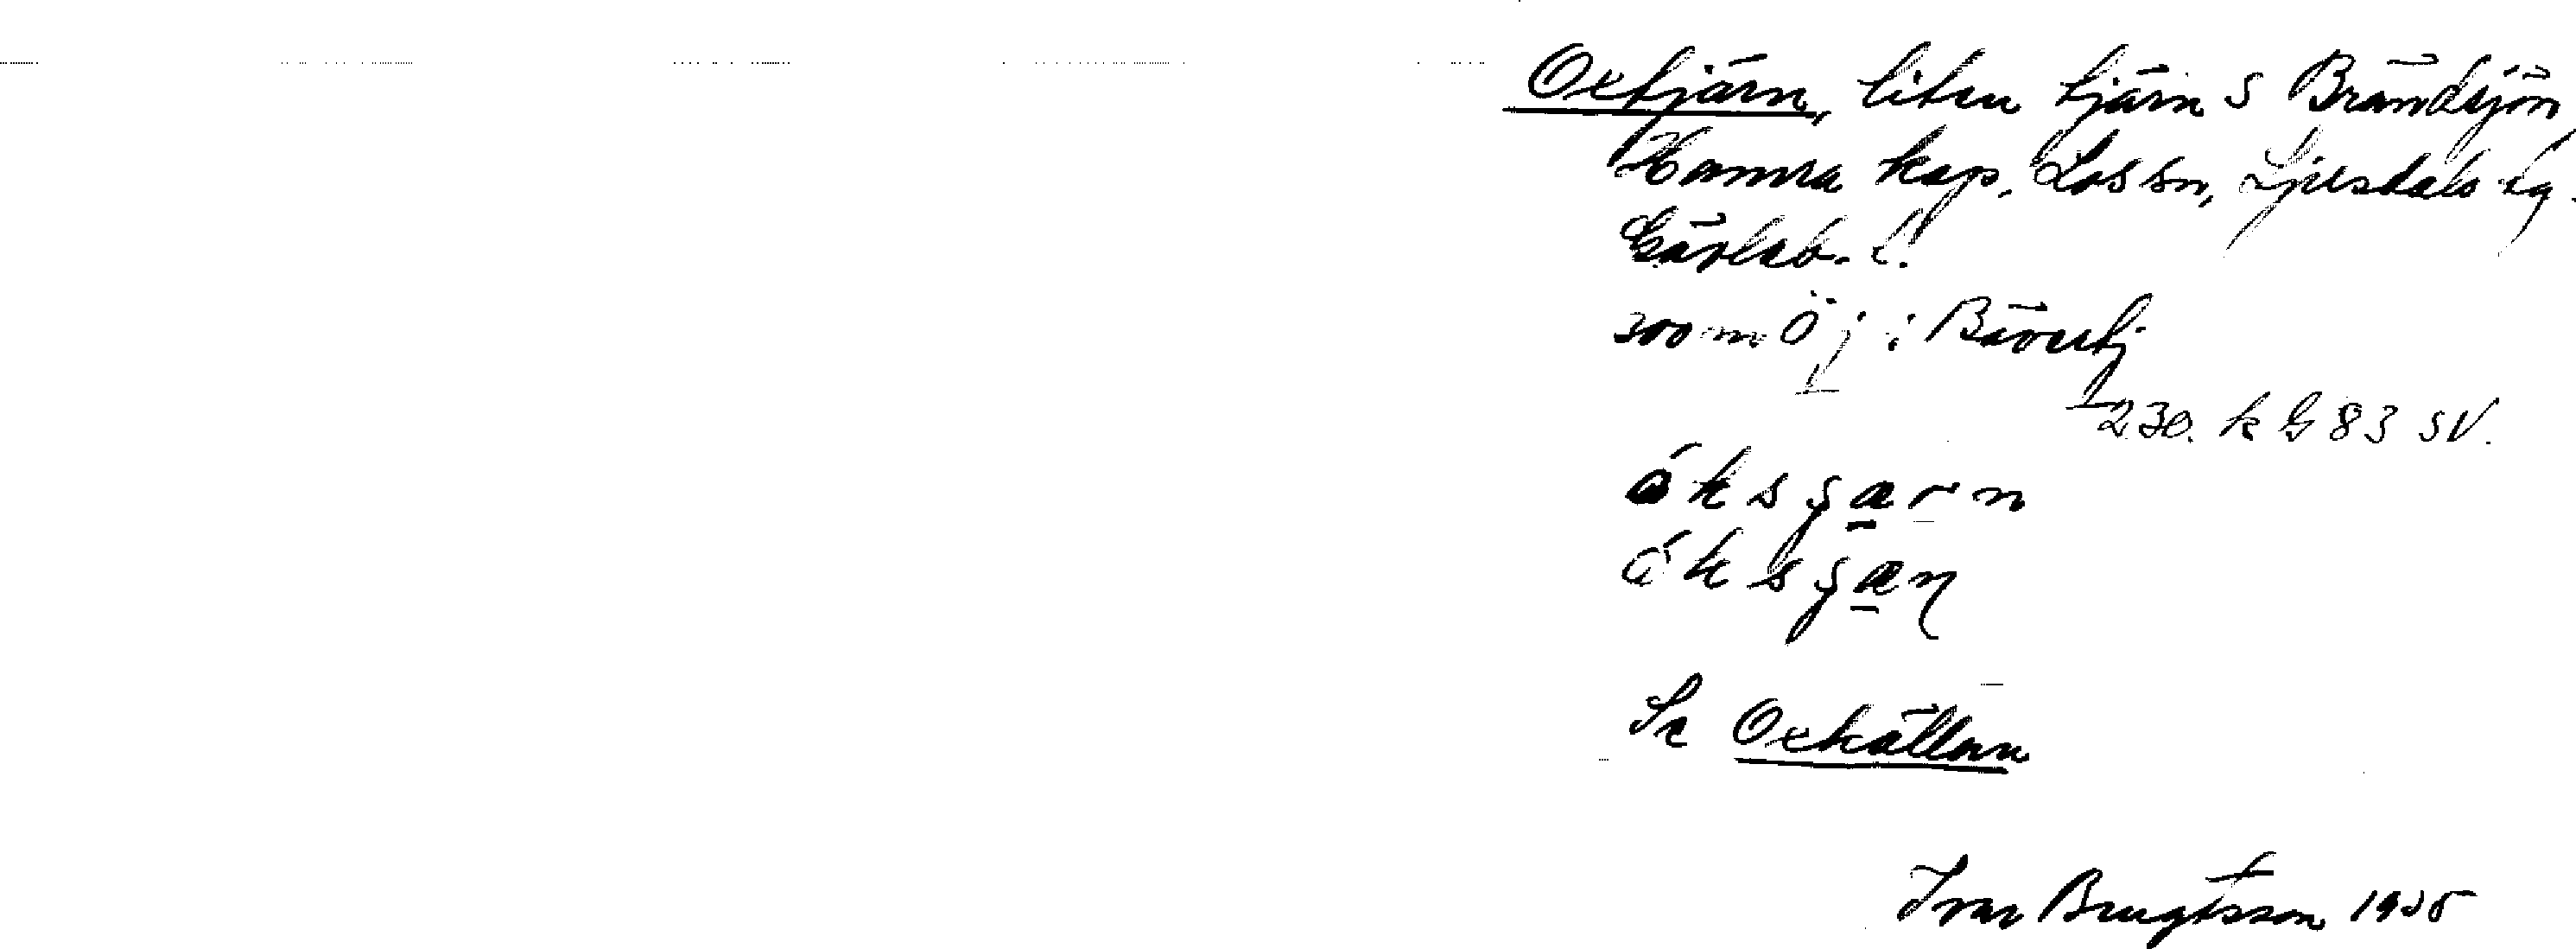 Oxtjärn, liten tjärn S Brändsjön,
Hamra kap. Los sn, Ljusdals tg.
Gävleb. l.
300 m Ö j i Bävertj
230. k G 83 SV.
óksʃærn
óksʃæɳ
Se Oxkällan
Ivar Bengtsson 1935